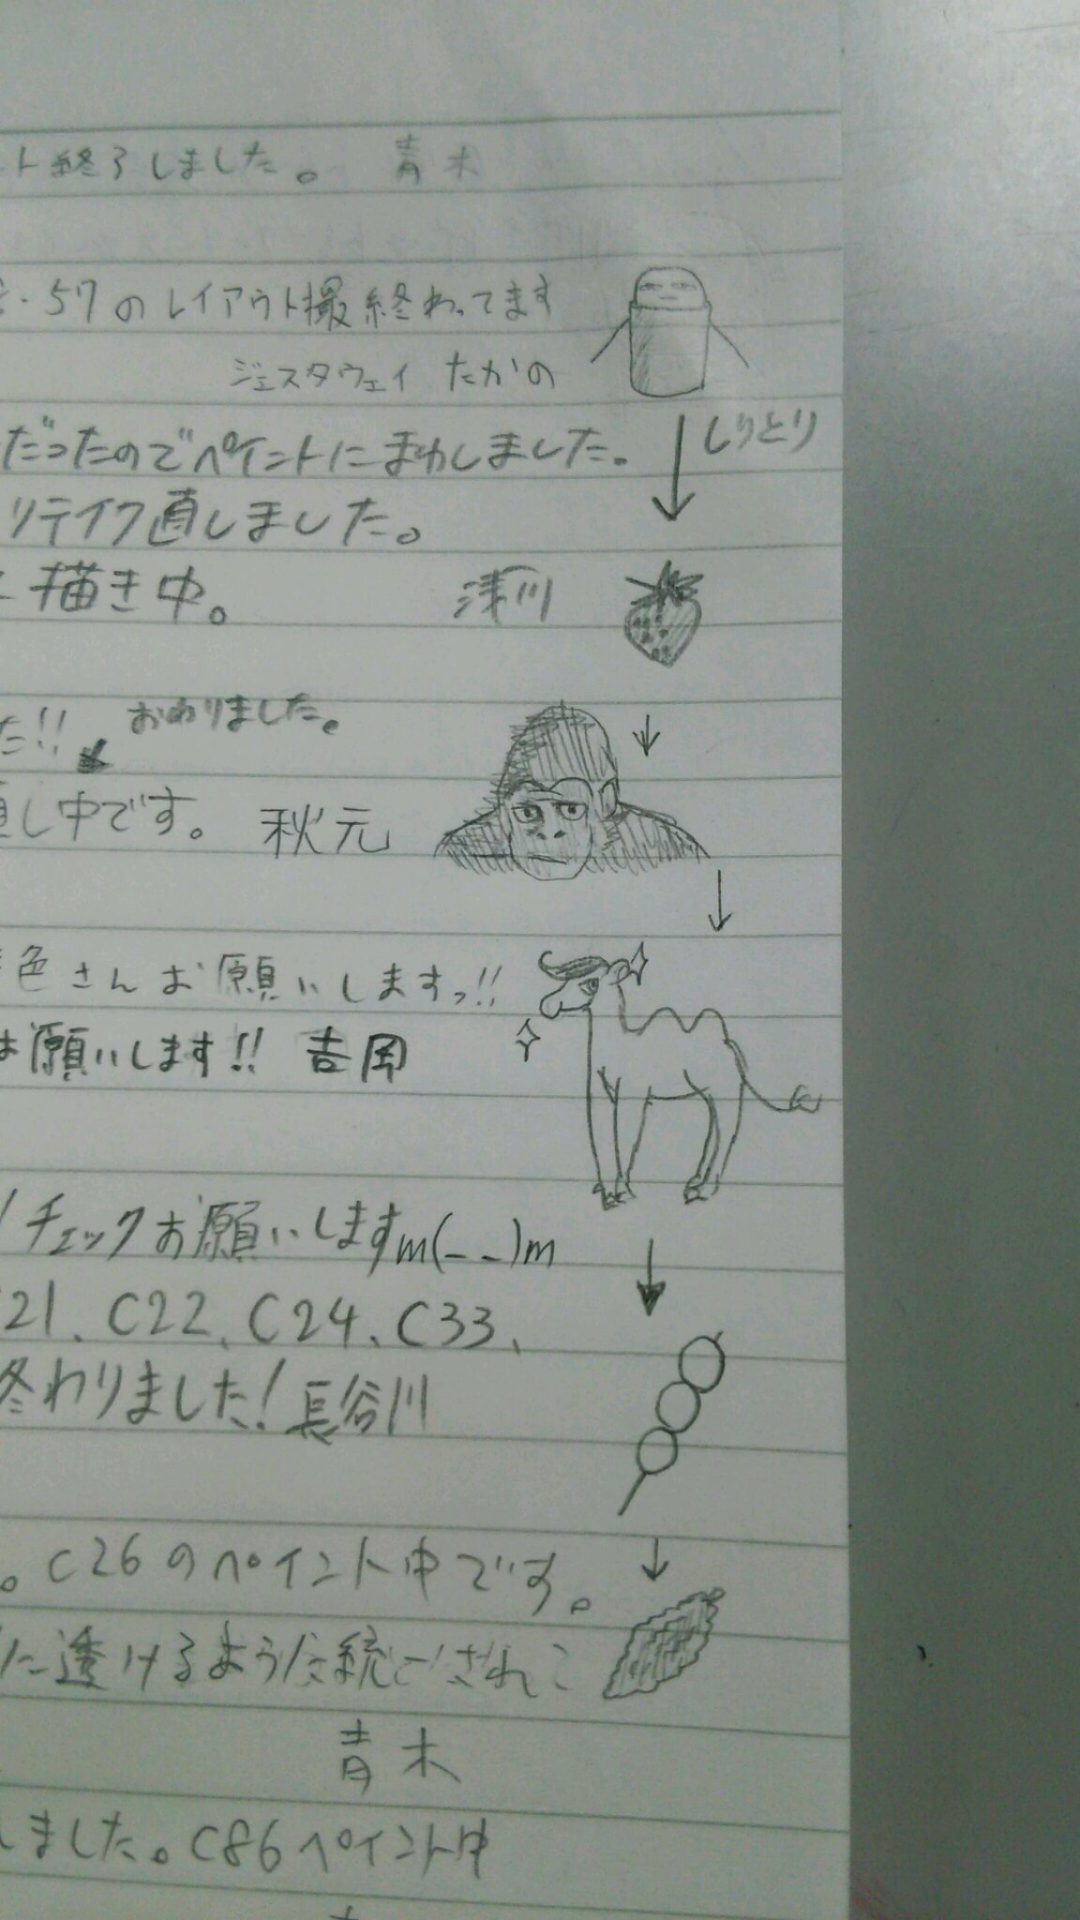 ト終了しました。 青木
・57のレイアウト撮終わってます
ジェスタウェイ たかの
だったのでペイントにまわしました。
しりとり
リテイク直しました。
描き中。 津川
た!! おわりました。
直し中です。 秋元
色さんお願いしますっ!!
お願いします!! 吉岡
チェックお願いしますm(_ _)m
21、C22、C24、C33、
終わりました!長谷川
。C26のペイント中です。
に透けるような統一されこ
青木
しました。C86ペイント中